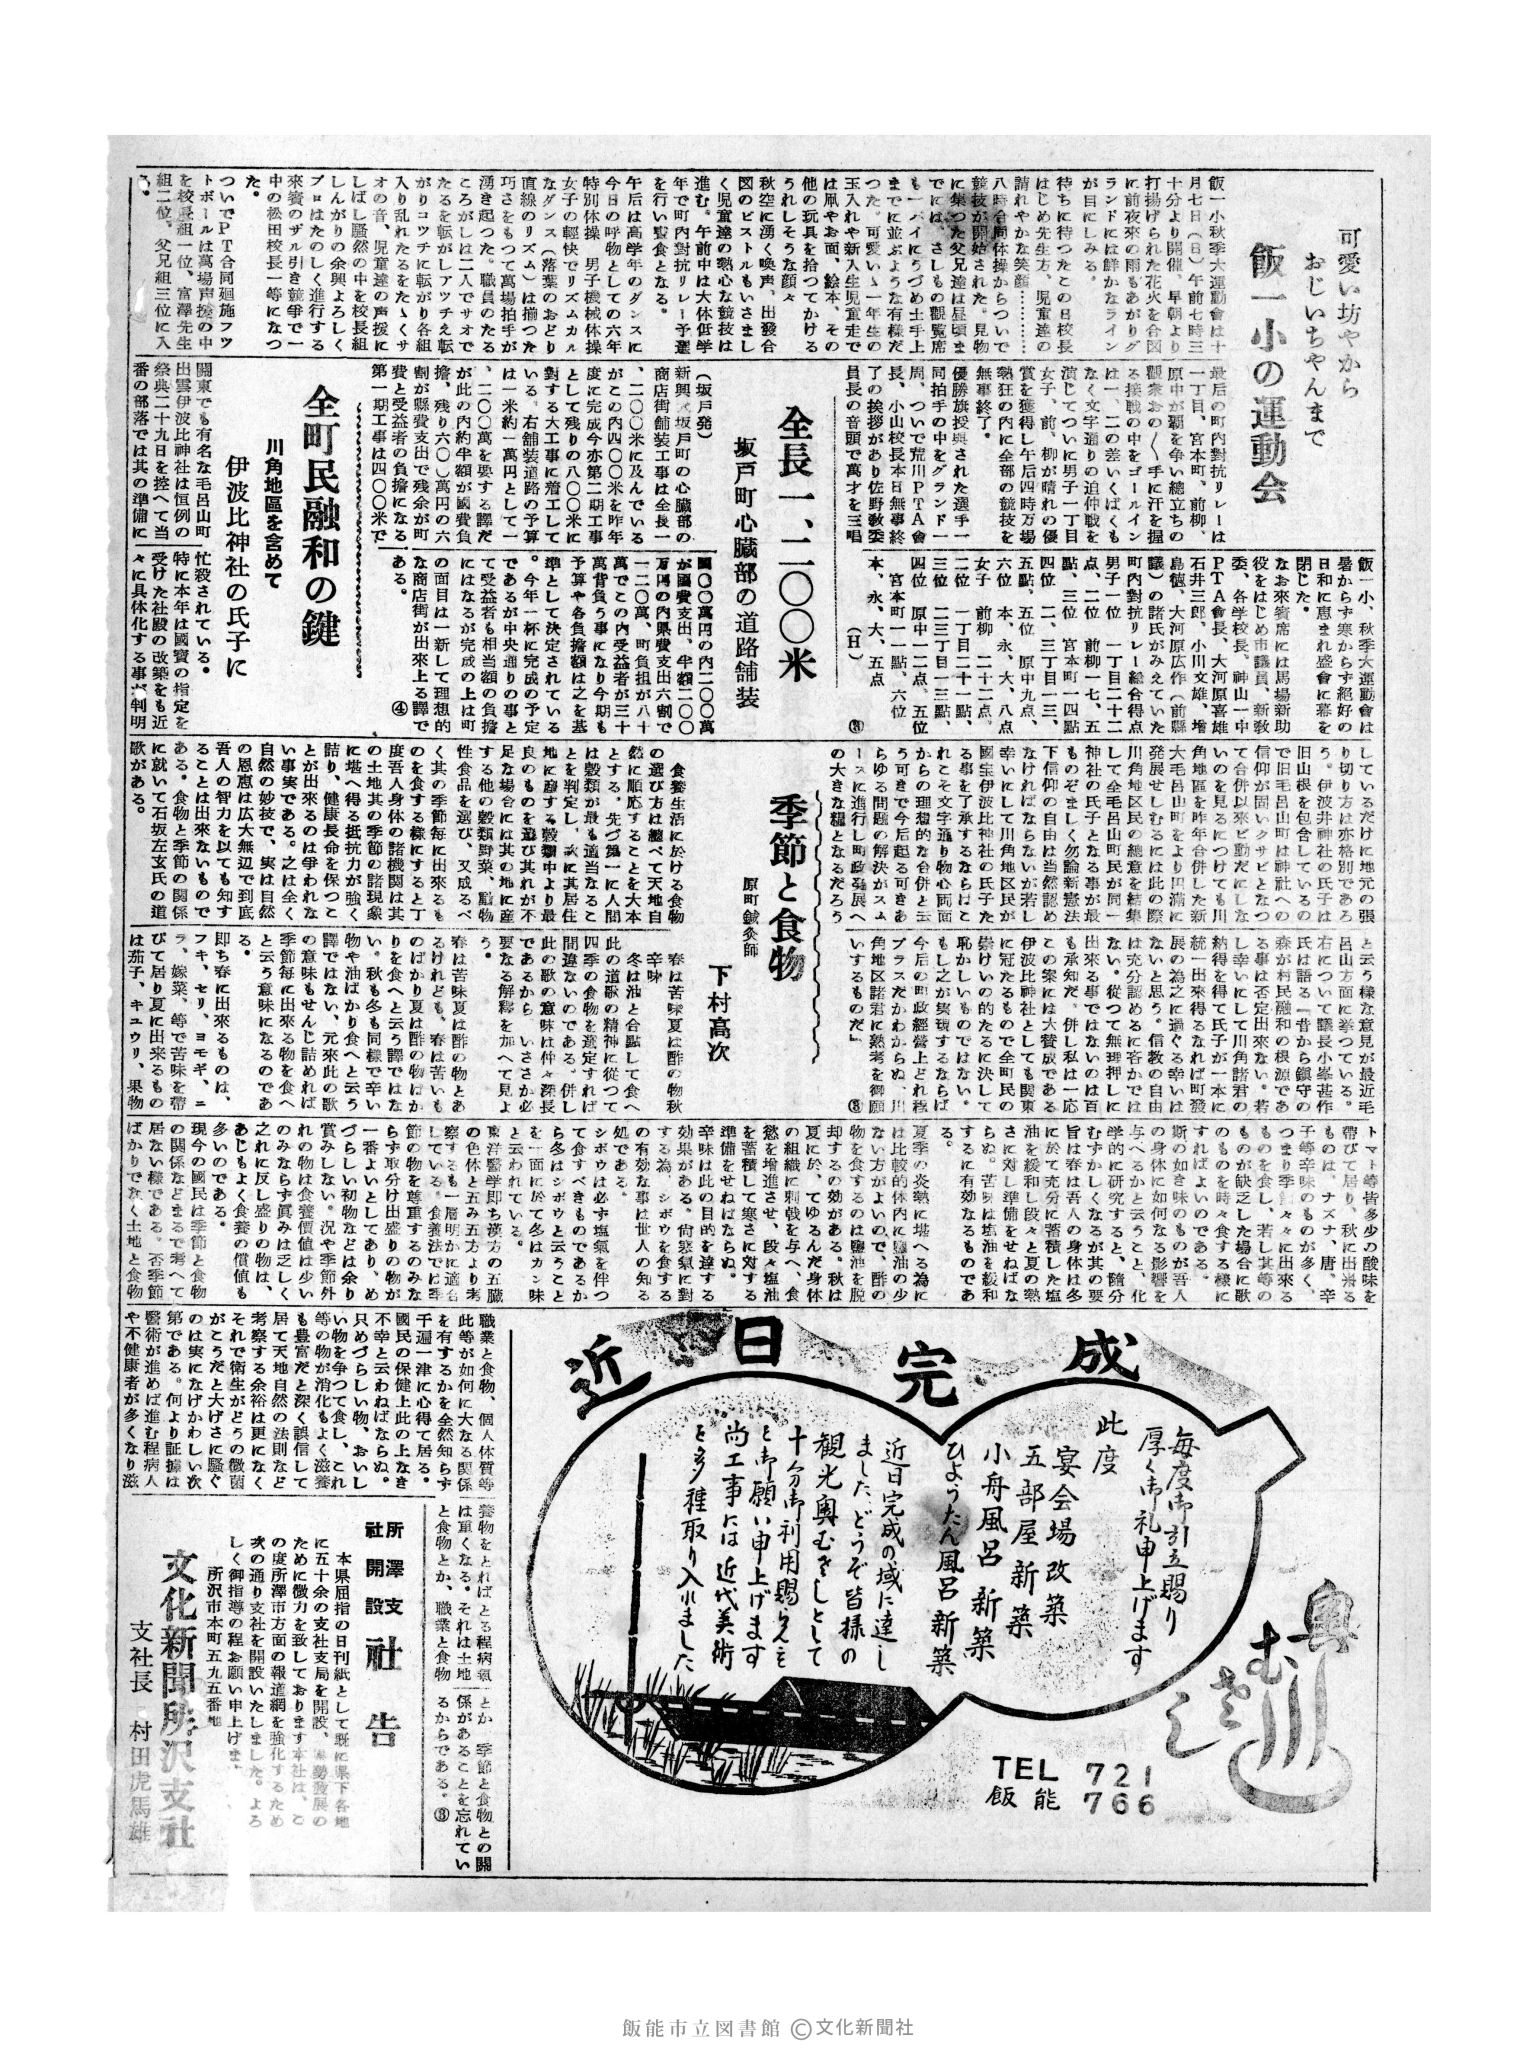 可愛い坊やから
おじいちゃんまで
飯一小の運動会
飯一小秋季大運動会は十
月七日(日)午前七時三
十分より開催、早朝より
打揚げられた花火を合図
に前夜來の雨もあがりグ
ランドには詳かなライン
が目にしみる。
待ちに待つたこの日校長
はじめ先生方、児童達の
請れやかな笑顔…………
八時合同体操からついで
競技が開始された。見物
に集つた父兄達は昼頃ま
でには、さしもの觀覧席
も一パイにうづめ土手上
までに並ぶような有様だ
つた。可愛いゝ一年生の
玉入れや新入生児童走で
は凧やお面、絵本、その
他の玩具を拾つてかける
うれしそうな顔々
秋空に湧く喚声、出發合
図のピストルもいさまし
く児童達の熱心な競技は
進む。午前中は大体低学
年で町内對抗リレー予選
を行い晝食となる。
午后は高学年のダンスに
今日の呼物としての六年
特別体操 男子機械体操
女子の輕快でリズムカル
なダンス(落葉のおどり
直線のリズム)は揃つた
巧さをもつて萬場拍手が
湧き起つた。職員のたる
ころがしは二人でサオで
たるを転がしアツチえ転
がりコツチに転がり各組
入り乱れたるをたゝくサ
オの音、児童達の声援に
しばし騒然の中を校長組
しんがりの余興よろしく
プロはたのしく進行する
來賓のザル引き競爭で一
中の松田校長一等になつ
た。
ついでPT合同廻施フツ
トボールは萬場声援の中
を校長組一位、富澤先生
組二位、父兄組三位に入
る。
最后の町内對抗リレーは
一丁目、宮本町、前柳、
原中が覇を争い總立ちの
觀衆おの〱手に汗を握
る接戦の中をゴールイン
は一、二の差いくばくも
なく文字通りの迫仲戦を
演じてついに男子一丁目
女子、前、柳が晴れの優
賞を獲得し午后四時万場
熱狂の内に全部の競技を
無事終了。
優勝旗授與された選手一
同拍手の中をグランド一
周、ついで荒川PTA會
長、小山校長本日無事終
了の挨拶があり佐野敎委
員長の音頭で萬才を三唱
飯一小、秋季大運動会は
暑からず寒からず絶好の
日和に恵まれ盛會に幕を
閉じた。
なお來賓席には馬場新助
役をはじめ市議員、新敎
委、各学校長、神山一中
PTA會長、大河原喜雄
石井三郎、小川文雄、増
島徳、大河原広作(前縣
議)の諸氏がみえていた
町内對抗リレー総合得点
男子一位 一丁目二十二
点、二位 前柳一七、五
點、三位 宮本町一四點
四位 二、三丁目一三、
五點、五位 原中九点、
六位 本、永、大、八点
女子 前柳 二十二点。
二位 一丁目二十一點、
三位 二三丁目一三點、
四位 原中一二点、五位
 宮本町一一點、六位
本、永、大、五点
(H)
全長一、二〇〇米
坂戸町心臓部の道路舗装
(坂戸発)
新興坂戸町の心臓部の
商店街舗装工事は全長一
、二〇〇米に及んでいる
がこの内四〇〇米を昨年
度に完成今亦第二期工事
として残りの八〇〇米に
對する大工事に着工して
いる。右舗装道路の予算
は一米約一萬円として一
、二〇〇萬を要する譯だ
が此の内約半額が國費負
擔、残り六〇〇萬円の六
割が縣費支出で残余が町
費と受益者の負擔になる
第一期工事は四〇〇米で
四〇〇萬円の内二〇〇萬
が國費支出、半額二〇〇
万円の内県費支出六割で
一二〇萬、町負担が八十
萬でこの内受益者が三十
萬背負う事になり今期も
予算や各負擔額は之を基
準として決定されている
。今年一杯に完成の予定
であるが中央通りの事と
て受益者も相当額の負擔
にはなるが完成の上は町
の面目は一新して理想的
な商店街が出來上る譯で
ある。 ④
全町民融和の鍵
川角地區を含めて
伊波比神社の氏子に
関東でも有名な毛呂山町
出雲伊波比神社は恒例の
祭典二十九日を控へて当
番の部落では其の準備に
忙殺されている。
特に本年は國寳の指定を
受けた社殿の改築をも近
々に具体化する事が判明
しているだけに地元の張
り切り方は亦格別であろ
う。伊波井神社の氏子は
旧山根を包含しているの
で旧毛呂山町は神社への
信仰が固いクサビとなつ
て合併以來ビ動だにしな
いのを見るにつけても川
角地區を昨年合併した新
大毛呂山町をより円満に
発展せしむるには此の際
川角地区民の總意を結集
して全毛呂山町民が同一
神社の氏子となる事が最
ものぞましく勿論新憲法
下信仰の自由は当然認め
なければならないが若し
幸いにして川角地区民が
國宝伊波比神社の氏子た
る事を了承するならばこ
れこそ文字通り物心一如
からの理想的な合併と云
う可きで今后起る可きあ
らゆる問題の解決がスム
ースに進行し町政発展へ
の大きな糧となるだろう
と云う様な意見が最近毛
呂山方面に挙つている。
右について議長小峯甚作
氏は語る「昔から鎮守の
森が村民融和の根源であ
る事は否定出來ない。若
し幸いにして川角諸君の
納得を得て氏子が一本に
統一出來得るなれば町發
展の為之に過ぐる幸いは
ないと思う。信敎の自由
は充分認めるに客かでは
ない。従つて無理押しに
出來る事ではないのは百
も承知だ、併し私は一応
この案には大賛成である
伊波比神社としても関東
に冠たるもので全町民の
崇けいの的たるに決して
恥かしいものではない。
もし之が実現するならば
今后の町政經營上どれ程
プラスだかわからぬ、川
角地区諸君に熟考を御願
いするものだ」
季節と食物
原町鍼灸師
下村高次
食養生活に於ける食物
の選び方は總べて天地自
然に順応することを大本
とする。先づ第一に人間
は穀類が最も適当なるこ
とを判定し、次に其居住
地に産する穀類中より最
良のものを選び其れが不
足な場合には其の地に産
する他の穀類野菜、動物
性食品を選び、又成るべ
く其の季節毎に出來るも
のを食する様にすると丁
度吾人身体の諸機関は其
の土地其の季節の諸現象
に堪へ得る抵抗力が強く
詰り、健康長命を保つこ
とが出來るのは伊われな
い事実である。之は全く
自然の妙技で、実は自然
の恩恵は広大無辺で到底
吾人の智力を以ても知す
ることは出來ないもので
ある。食物と季節の関係
に就いて石坂左玄氏の道
歌がある。
春は苦味夏は酢の物秋
辛味
冬は油と合點して食へ
此の道歌の精神に從つて
四季の食物を選定すれば
間違ないのである。併し
此の歌の意味は仲々深長
であるから、いささか必
要なる解釋を加へて見よ
う。
春は苦味夏は酢の物とあ
るけれども、春は苦いも
のばかり夏は酢の物ばか
りを食へと云う譯ではな
い。秋も冬も同様で辛い
物や油ばかり食へと云う
譯ではない、元來此の歌
の意味もせんじ詰めれば
季節毎に出來る物を食へ
と云う意味になるのであ
る。
即ち春に出來るものは、
フキ、セリ、ヨモギ、ニ
ラ、嫁菜、等で苦味を帶
びて居り夏に出來るもの
は茄子、キュウリ、果物
トマト等皆多少の酸味を
帶びて居り、秋に出來る
ものは、ナズナ、唐、辛
子等辛味のものが多く、
つまり季節々々に出來る
ものを食し、若し其等の
ものが缺乏した場合に歌
のものを時々食する様に
すればよいのである。
斯の如き味のものが吾人
の身体に如何なる影響を
与へるかと云うこと、化
学的に研究すると、隨分
むずかしくなるが其の要
旨は春は吾人の身体は冬
に於て充分に蓄積した塩
油を緩和し段々と夏の熱
さに対し準備をせねばな
らぬ。苦味は塩油を緩和
するに有効なるものであ
る。
夏季の炎熱に堪へる為に
は比較的体内に鹽油の少
ない方がよいので、酢の
物を食するのは鹽油を脱
却するの効がある。秋は
夏に於、てゆるんだ身体
の組織に刺戟を与へ、食
慾を増進させ、段々塩油
を蓄積して寒さに対する
準備をせねばならぬ。
辛味は此の目的を達する
効果がある。尙悪氣に對
する為、シボウを食する
の有効な事は世人の知る
処である。
シボウは必ず塩氣を伴つ
て食すべきものであるか
ら多はシボウと云うこと
を一面に於て冬はカン味
と云われている。
東洋醫学即ち漢方の五臓
の色体と五み五方より考
察するも一層明かに適合
している。食養法では季
節の物を尊重するのみな
らず取分け出盛りの物が
一番よいとしてあり、め
づらしい初物などは余り
賞みしない。況や季節外
れの物は食養価値は少い
のみならず眞みは乏しく
之れに反し盛りの物は、
あじもよく食養の價値も
多いのである。
現今の國民は季節と食物
の関係などまるで考へて
居ない様である。否季節
ばかりでなく土地と食物
職業と食物、個人体質等
此等が如何に大なる関係
を有するかを全然知らず
千遍一津に心得て居る。
國民の保健上此の上なき
不幸と云わねばならぬ。
只めづらしい物、おいし
い物を争つて食し、これ
等の物が消化もよく滋養
も豊富だと深く誤信して
居て天地自然の法則など
考察する余裕は更になく
それで衛生がどうの黴菌
がこうだと大げさに騒ぐ
のは実になげかわしい次
第である。何より証據は
醫術が進めば進む程病人
や不健康者が多くなり滋
養物をとればとる程病氣
は重くなる。それは土地
と食物とか、職業と食物
とか、季節と食物との關
係があることを忘れてい
るからである。③
所澤支
社開設
社告
本県屈指の日刊紙として既に県下各地
に五十余の支社支局を開設、
ために微力を致しております本社は、こ
の度所澤市方面の報道網を強化するため
次の通り支社を開設いたしました。よろ
しく御指導の程お願い申上げま
所沢市本町五九五番地
文化新聞所沢支社
支社長 村田虎馬雄
近日完成
毎度御引立賜り
厚く御礼申上げます
此度
宴会場改築
五部屋新築
小舟風呂新築
ひょうたん風呂新築
近日完成の域に達し
ました どうぞ皆様の
観光奥むさしとして
十分御利用賜らんを
と御願い申上げます
尚工事には近代美術
を多種取り入れました
奥むさし
TEL 721
飯能 766
飯能市立図書館 ©文化新聞社